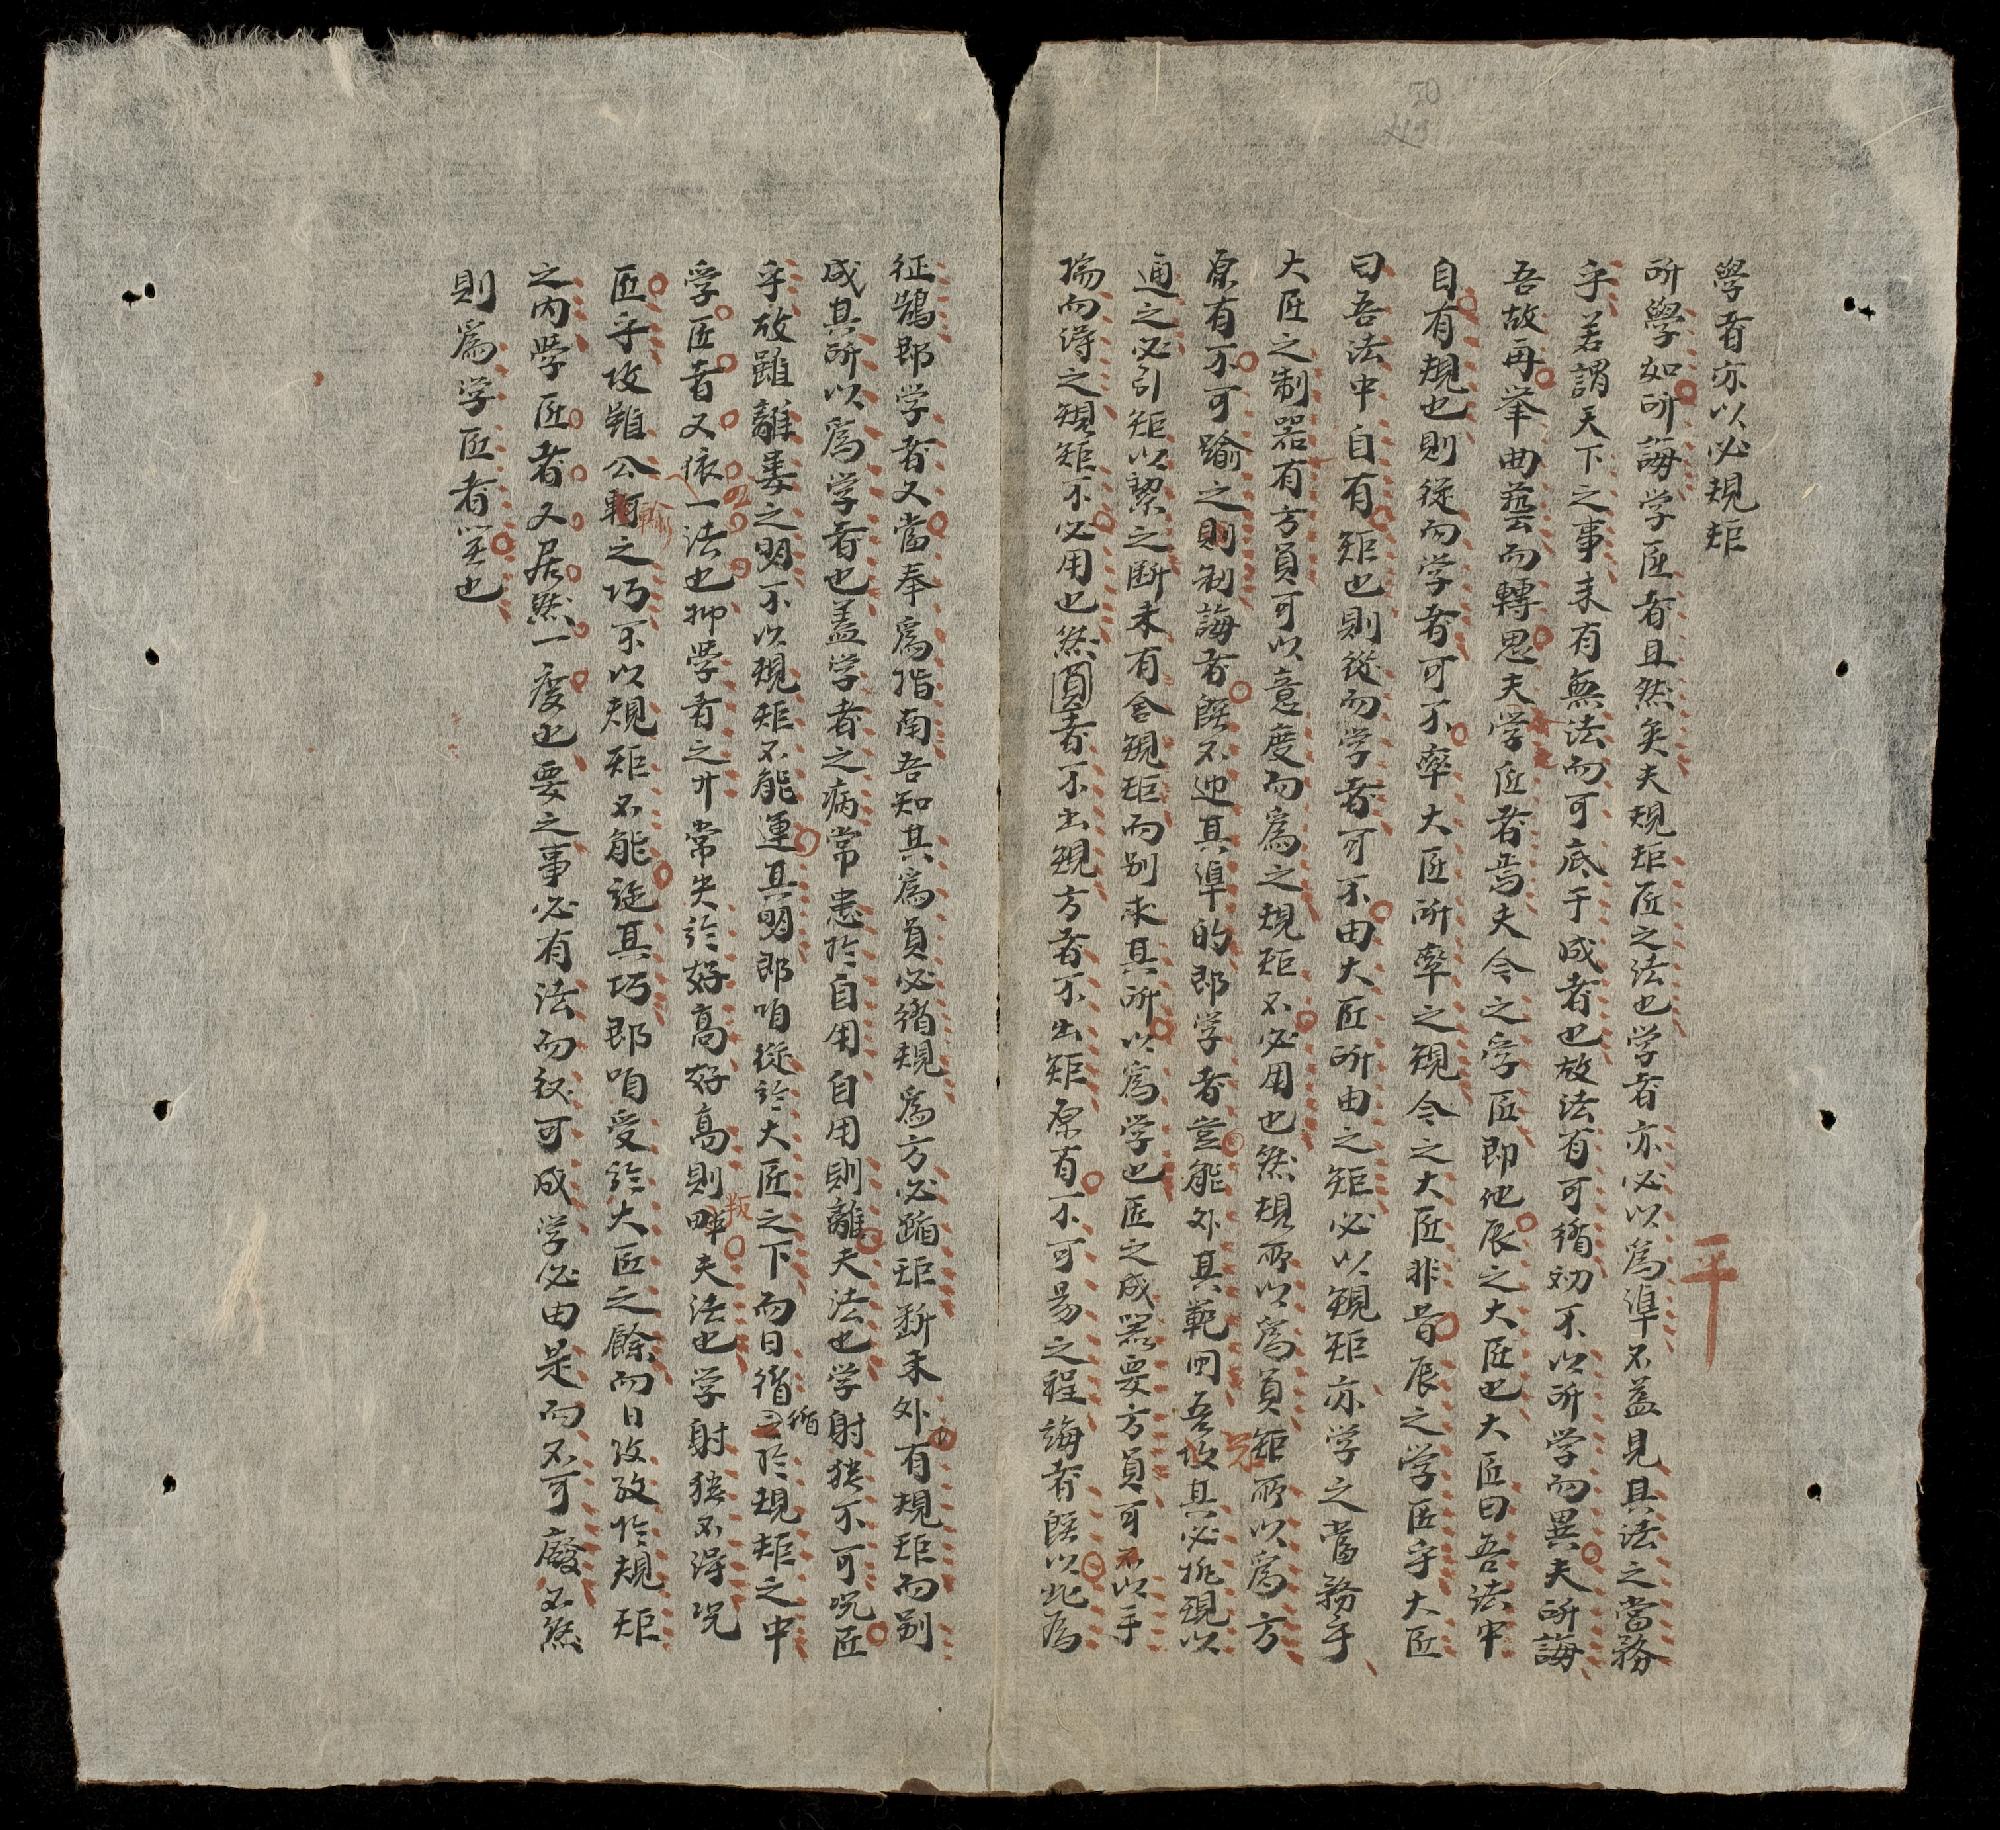 學者亦以必規矩
所學如所誨学匠者且然矣夫規矩匠之法也学者亦必以為準不益見其法之當務
乎若謂天下之事未有無法而可底于成者也故法有可循効不以所学而異夫所誨
吾故再举曲藝而轉思夫学匠者焉夫今之学匠即他辰之大匠也大匠曰吾法中
自有規也則從而学者可不率大匠所率之規今之大匠非昔辰之学匠乎大匠
曰吾法中自有矩也則從而学者可不由大匠所由之矩必以規矩亦学之當務乎
大匠之制器有方員可以意度而為之規矩不必用也然規所以為員矩所以為方
原有不可踰之則制誨者既不迎其準的即学者豈能外其範囲吾攷其必挑規以
通之必引矩以絜之断未有舍規矩而别求其所以為学也匠之成器要方員可以手
揣而得之規矩不必用也然圓者不出規方者不出矩原有不可易之程誨者既以此為
征鵠即学者又當奉為指南吾知其為員必循規為方必蹈矩斷未外有規矩而别
成其所以為学者也盖学者之病常患於自用自用則離夫法也学射猶不可况匠
乎故雖離婁之明不以規矩不能運其明即咱從於大匠之下而日循循於規矩之中
学匠者又依一法也抑学者之才常失於好高好高則畔叛夫法也学射猶不得况
匠乎故雖公輸之巧不以規矩不能逞其巧即咱受於大匠之餘而日孜孜於規矩
之内学匠者又居然一度也要之事必有法而後可成学必由是而不可廢不然
則為学匠者罕也
平